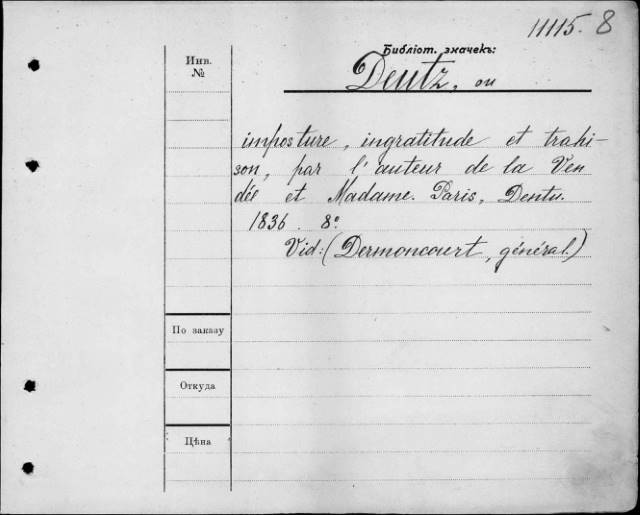 11115. 8
Библіот. значекъ:
Инв.
№
Deutz, ou
imposture, ingratitude et trahi-
son, par l'auteur de la Ven
dél et Madame. Paris, Dentu.
1836. 8°.
Vid: (Dermoncourt, général.)
По заказу
Откуда
Цѣна